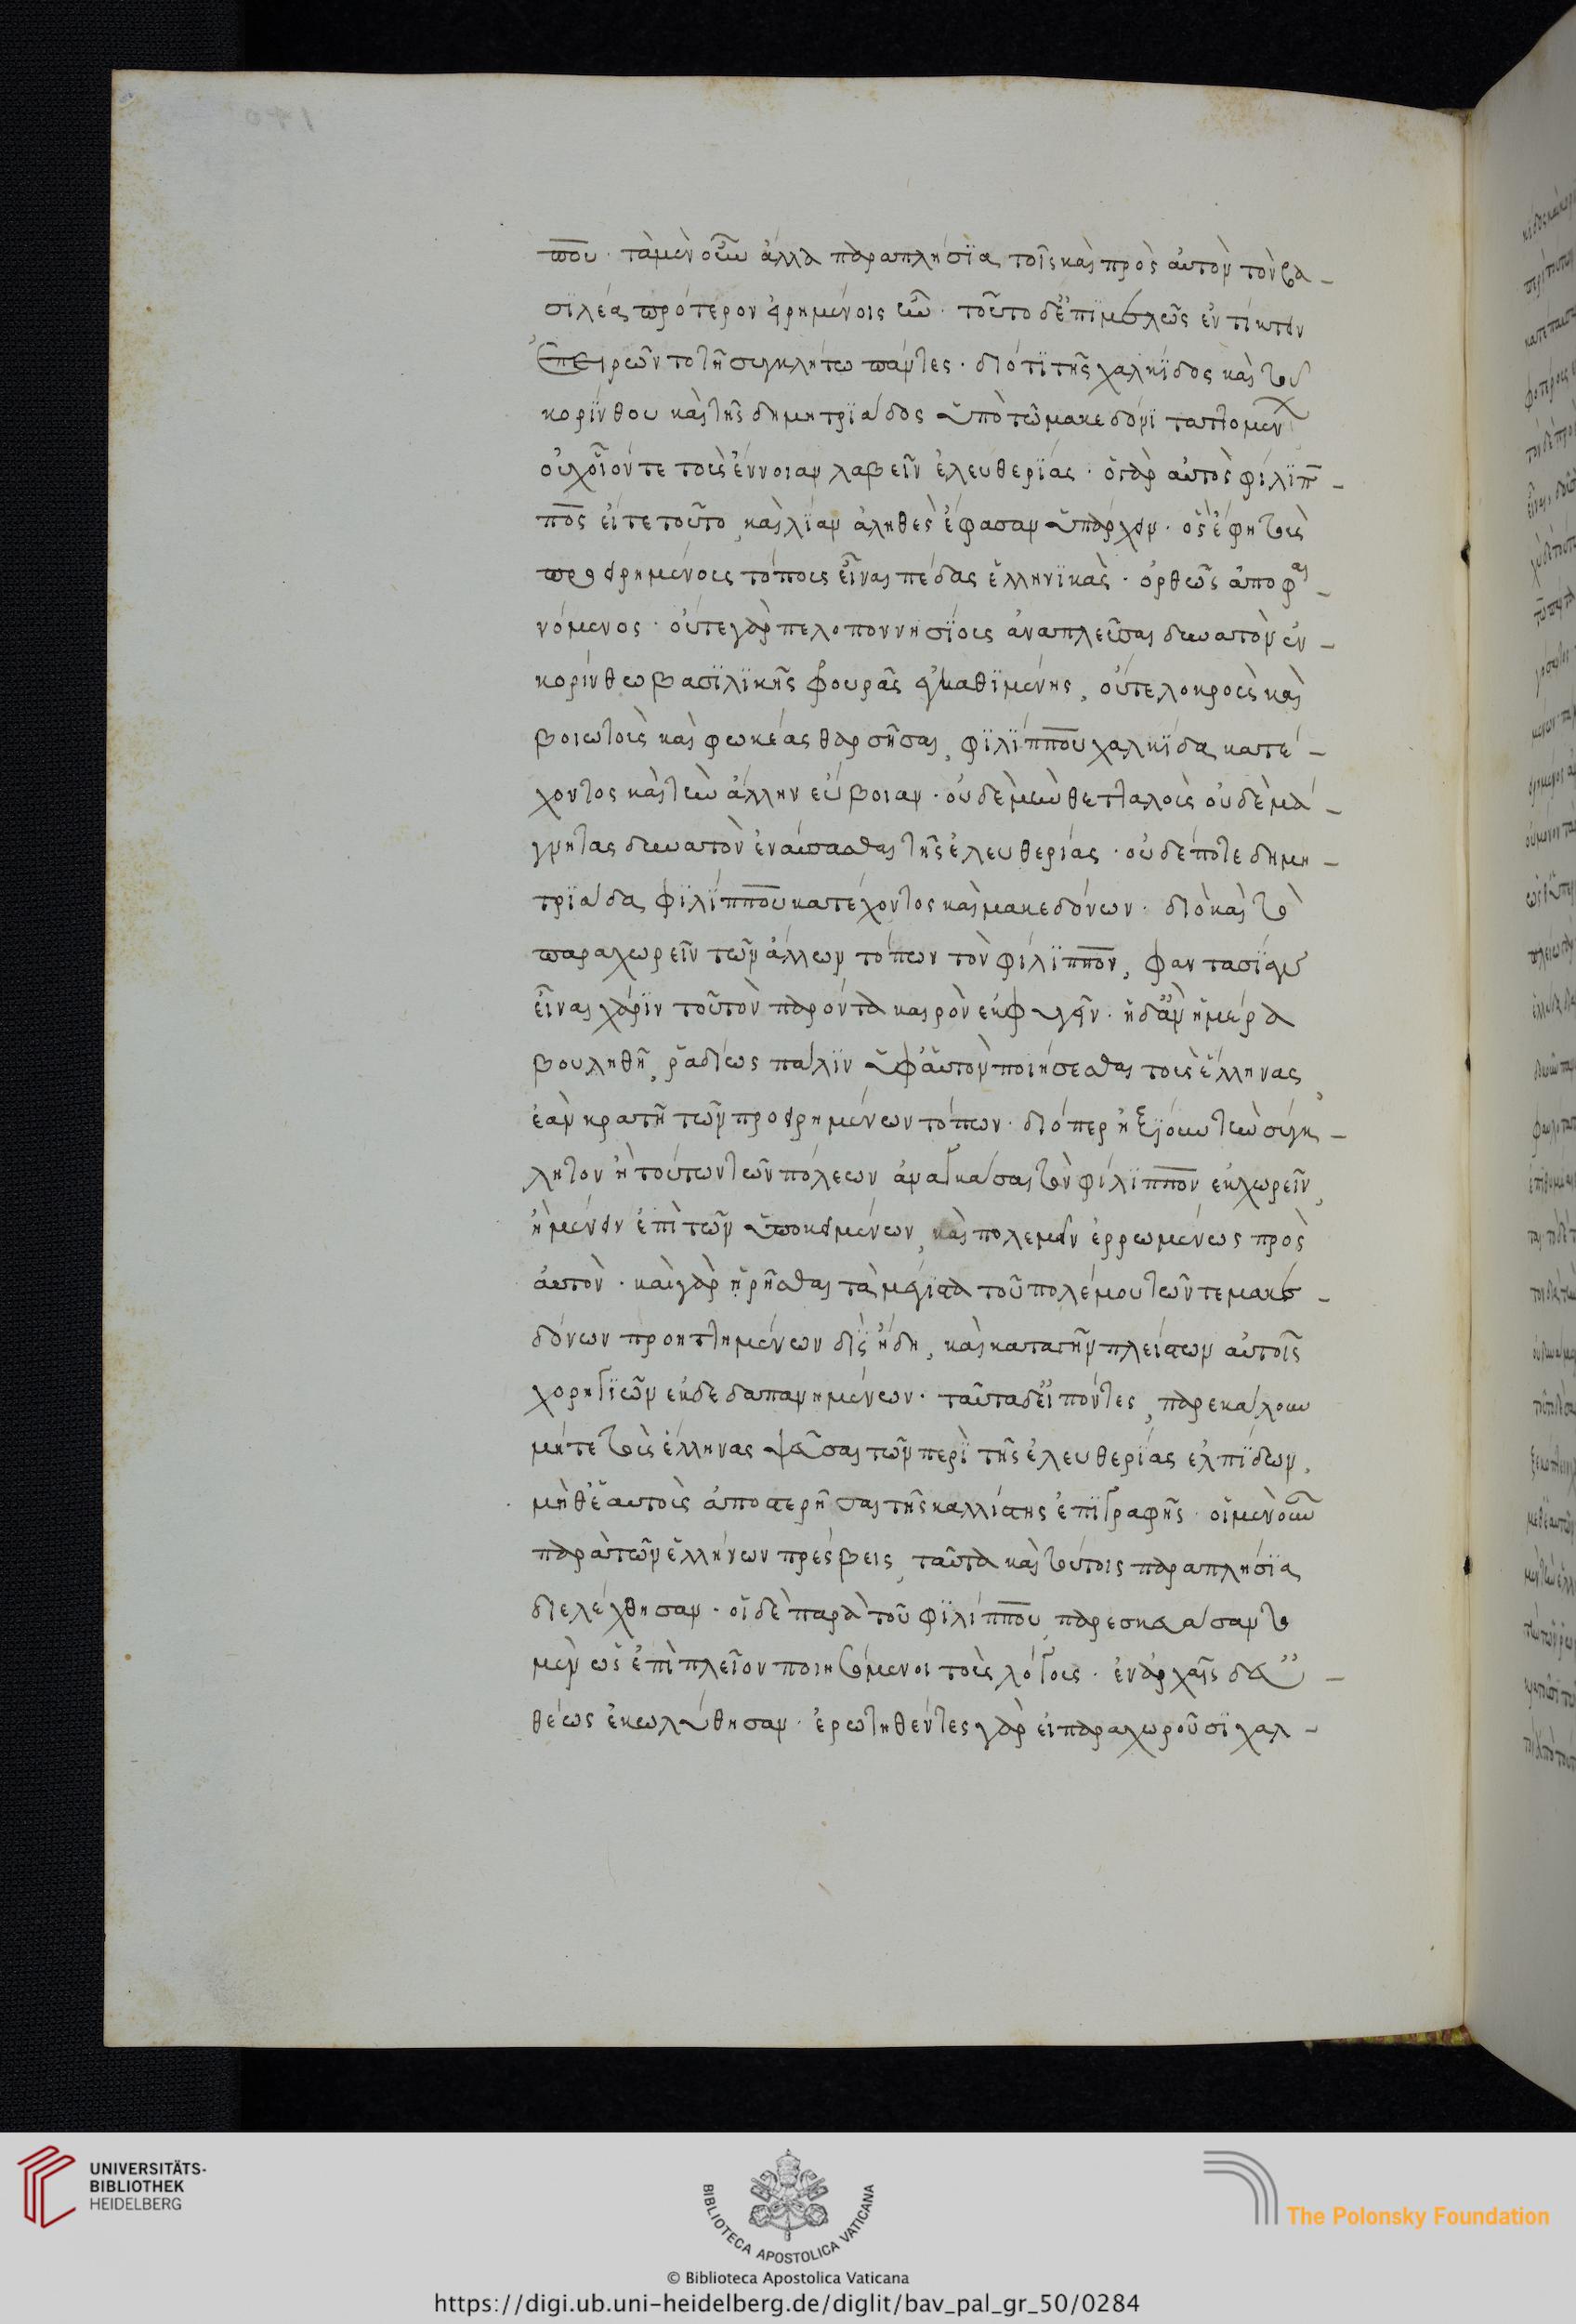 που· τὰ μὲν οὖν ἄλλα παραπλήσϊα τοῖς καὶ πρὸς αὐτὸν τὸν βα-
σϊλέα πρότερον εἰρημένοις ἦν· τοῦτο δ' ἐπϊμελῶς ἐντίκτειν
ἐπειρῶντο τῆ συγκλήτω πάντες· διότϊ τῆς χαλκΐδος καὶ τοῦ
κορίνθου καὶ τῆς δημητρϊάδος ὑπὸ τῶ μακεδόνϊ ταττομένων
οὐχ οἷόν τε τοὺς ἔννοιαν λαβεῖν ἐλευθερϊας· ὃ γὰρ αὐτὸς φίλϊπ-
πος εἶτε τοῦτο, καὶ λίαν ἀληθὲς ἔφασαν ὑπάρχειν· ὃς ἔφη τοὺς
προειρημένους τόπους εἶναι πέδας ἑλληνϊκὰς· ὀρθῶς ἀποφαι-
νόμενος· οὔτε γὰρ πελοποννησΐους ἀναπλεῦσαι δυνατὸν ἐν
κορίνθω βασϊλϊκῆς φρουρᾶς ἐγκαθϊμένης, οὔτε λοκροὺς καὶ
βοιωτοὺς καὶ φωκέας θαρσῆσαι, φϊλΐππου χαλκΐδα κατέ-
χοντος καὶ τὴν ἄλλην εὔβοιαν· οὐδὲ μὴν θετταλοὺς οὐδὲ μά-
γνητας δυνατὸν ἐναύσασθαι τῆς ἐλευθερίας· οὐδέποτε δημη-
τρϊάδα φϊλΐππου κατέχοντος καὶ μακεδόνων· διὸ καὶ τὸ
παραχωρεῖν τῶν ἄλλων τόπων τὸν φίλϊππον, φαντασΐαν
εἶναι χάρϊν τοῦ τὸν παρόντα καιρὸν ἐκφυγεῖν· ἧ δ' ἂν ἡμέρα
βουληθῆ, ῥαδΐως πάλϊν ὑφ' αὑτὸν ποιήσεσθαι τοὺς ἕλληνας,
ἐὰν κρατῆ τῶν προειρημένων τόπων· διόπερ ἠξΐουν τὴν σύγκ-
λητον ἢ τούτων τῶν πόλεων ἀναγκάσαι τὸν φίλϊππον ἐκχωρεῖν,
ἢ μένειν ἐπὶ τῶν ὑποκειμένων, καὶ πολεμεῖν ἐρρωμένως πρὸς
αὐτὸν· καὶ γὰρ ἡρῆσθαι τὰ μέγιστα τοῦ πολέμου τῶν τε μακε-
δόνων προηττημένων δὶς ἤδη, καὶ κατὰ γῆν πλείστων αὐτοῖς
χορηγϊῶν ἐκδεδαπανημένων· ταῦτα δ' εἰπόντες, παρεκάλουν
μήτε τοὺς ἕλληνας ψεῦσαι τῶν περὶ τῆς ἐλευθερίας ἐλπΐδων,
μήθ' ἑαυτοὺς ἀποστερῆσαι τῆς καλλίστης ἐπϊγραφῆς· οἱ μὲν οὖν
παρὰ τῶν ἑλλήνων πρέσβεις, ταῦτα καὶ τούτοις παραπλήσϊα
διελέχθησαν· οἱ δὲ παρὰ τοῦ φϊλίππου παρεσκευάσαντο
μὲν ὡς ἐπὶ πλεῖον ποιησόμενοι τοὺς λόγους· ἐν ἀρχαῖς δ' εὐ-
θέως ἐκωλύθησαν· ἐρωτηθέντες γὰρ εἰ παραχωροῦσϊ χαλ-
UNIVERSITÄTS-
BIBLIOTHEK
HEIDELBERG
BIBLIOTECA APOSTOLICA VATICANA
The Polonsky Foundation
© Biblioteca Apostolica Vaticana
https://digi.ub.uni-heidelberg.de/diglit/bav_pal_gr_50/0284